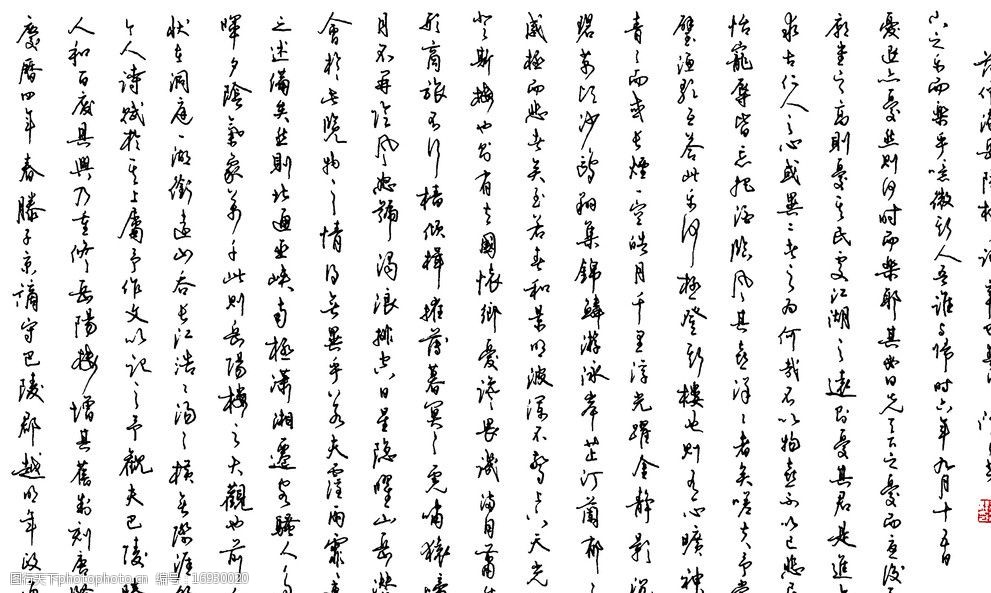 慶曆四年春滕子京謫守巴陵郡越明年政
人和百廢具興乃重修岳陽樓增其舊制刻唐賢
今人詩賦於其上屬予作文以記之予觀夫巴陵勝
狀在洞庭一湖銜遠山吞長江浩浩湯湯橫無際涯
暉夕陰氣象萬千此則岳陽樓之大觀也前人
之述備矣然則北通巫峽南極瀟湘遷客騷人多
會於此覽物之情得無異乎若夫霪雨霏霏
月不開陰風怒號濁浪排空日星隱曜山岳潛
形商旅不行檣傾楫摧薄暮冥冥虎嘯猿啼
登斯樓也則有去國懷鄉憂讒畏譏滿目蕭然
感極而悲者矣至若春和景明波瀾不驚上下天光
碧萬頃沙鷗翔集錦鱗游泳岸芷汀蘭郁
青青而或長煙一空皓月千里浮光躍金靜影沉
璧漁歌互答此樂何極登斯樓也則有心曠神
怡寵辱皆忘把酒臨風其喜洋洋者矣嗟夫予嘗
求古仁人之心或異二者之為何哉不以物喜不以己悲
廟堂之高則憂其民處江湖之遠則憂其君是進亦
憂退亦憂然則何時而樂耶其必曰先天下之憂而憂後
下之樂而樂乎噫微斯人吾誰與歸時六年九月十五日
图行天下photophoto.cn 编号:16930020